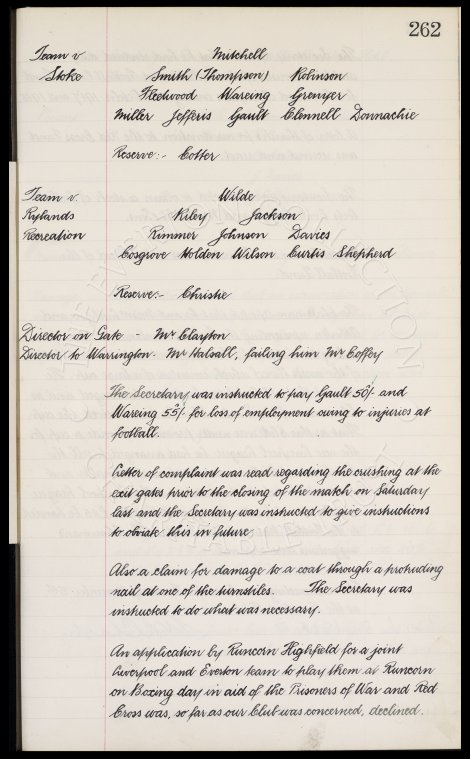 262
Team v. Mitchell
Stoke Smith (Thompson) Robinson
Fleetwood Wareing Grenyer
Miller Jefferis Gault Clennell Donnachie
Reserve:- Cotter
Team v. Wilde
Rylands Riley Jackson
Recreation Rimmer Johnson Davies
Cosgrove Holden Wilson Curtis Shepherd
Reserve:- Christie
Director on Gate Mr Clayton
Director to Warrington. Mr Halsall, failing him Mr Coffey
The Secretary was instructed to pay Gault 50/- and
Wareing 55/- for loss of employment owing to injuries at
football.
Letter of complaint was read regarding the crushing at the
exit gates prior to the closing of the match on Saturday
last and the Secretary was instructed to give instructions
to obviate this in future.
Also a claim for damage to a coat through a protruding
nail at one of the turnstiles. The Secretary was
instructed to do what was necessary.
An application by Runcorn Highfield for a joint
Liverpool and Everton team to play them at Runcorn
on Boxing day in aid of the Prisoners of War and Red
Cross was, so far as our Club was concerned, declined.